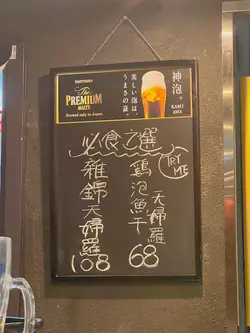 SUNTORY
The
PREMIUM
MALT'S
Second only in Japan
美しい泡は、
うまさの証。
神泡。
KAMI
AWA
必食之選
TRY
ME
鷄泡魚干
天婦羅
68
雜錦天婦羅
108